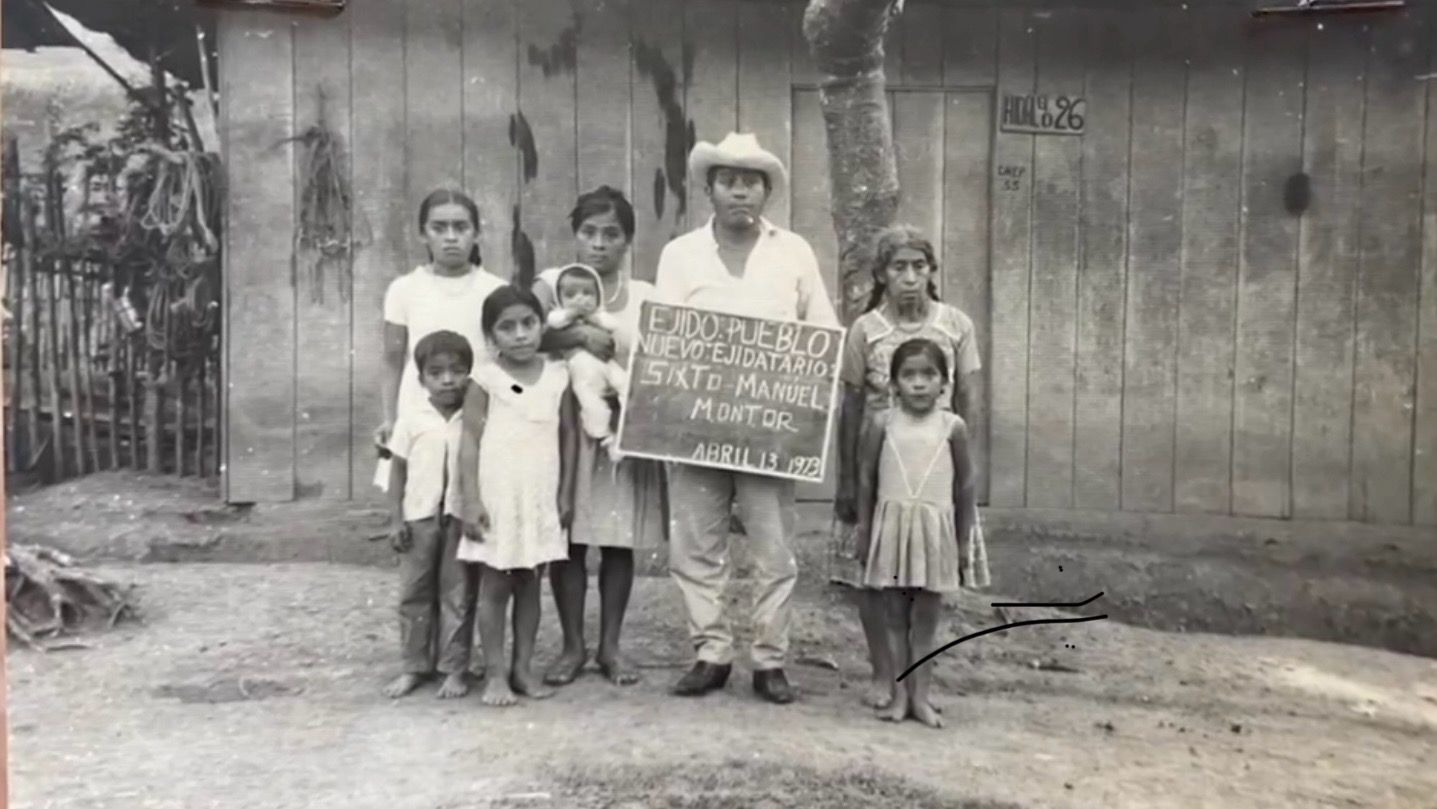 HIDALGO 26
CNEP
55
EJIDO: PUEBLO
NUEVO: EJIDATARIO:
SIXTO - MANÚEL
MONTOR
ABRIL 13 1973